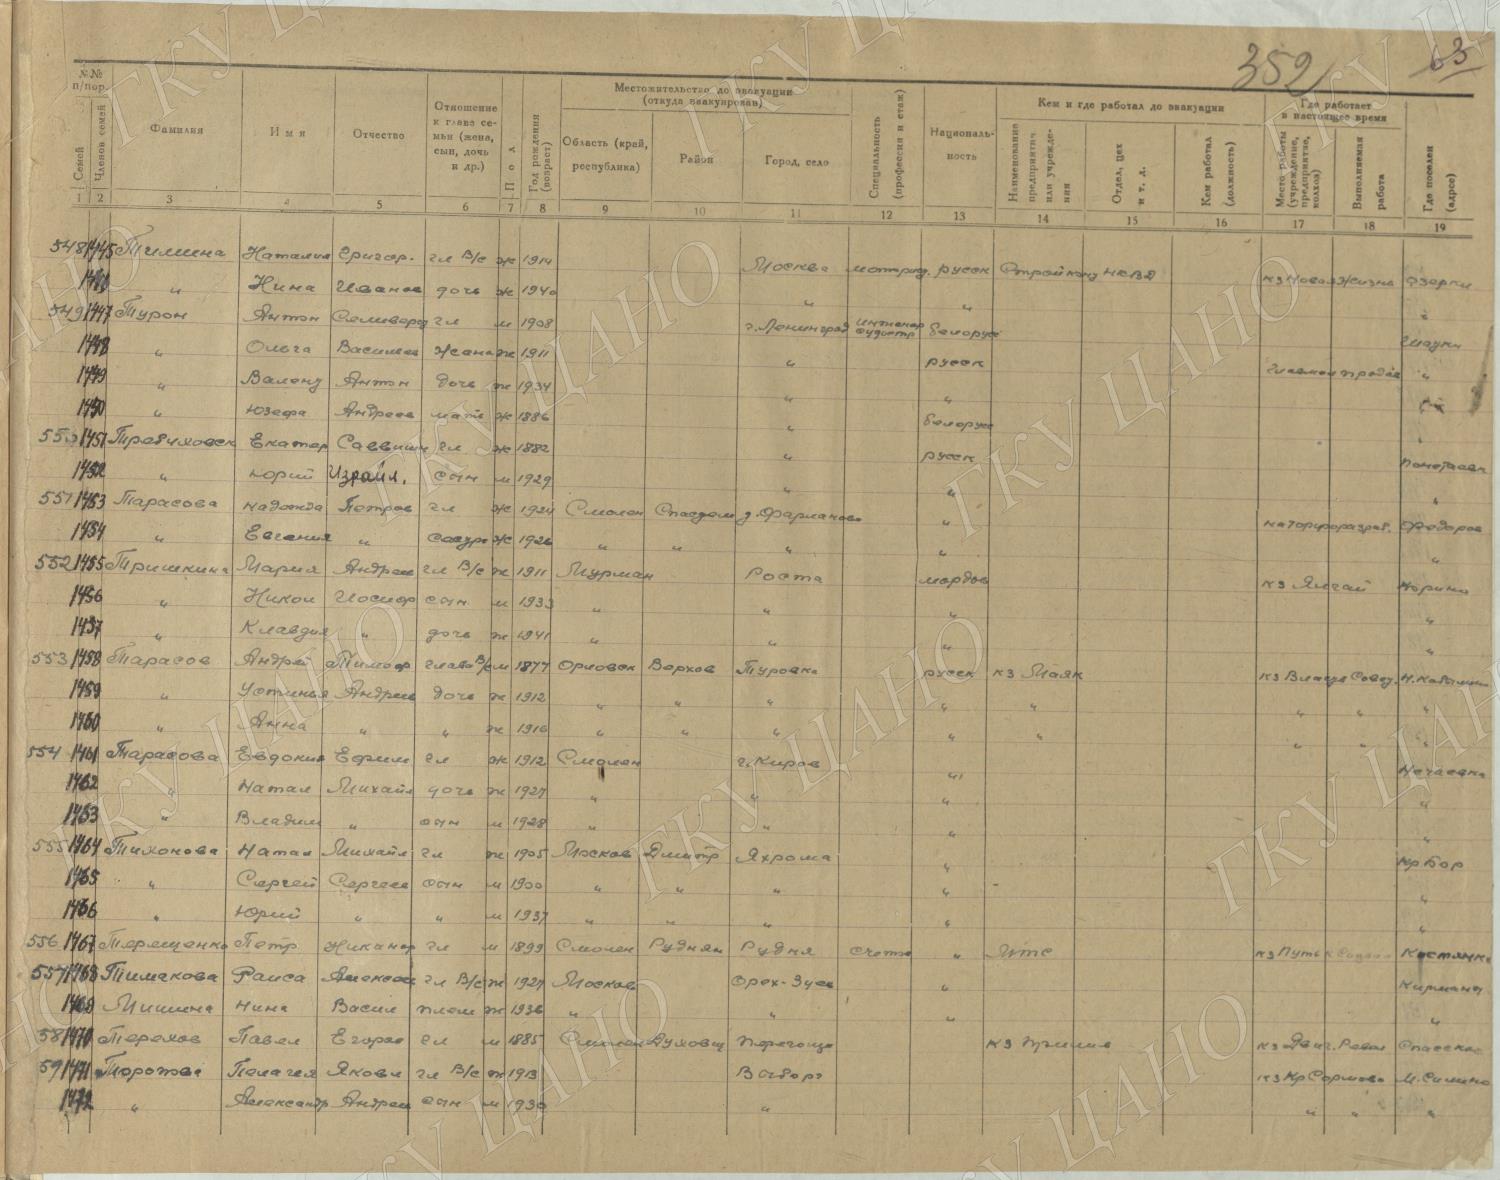 352 63
№№ п/пор. Местожительство до эвакуации (откуда эвакуирован) Кем и где работал до эвакуации Где работает в настоящее время
Семей Членов семей Фамилия Имя Отчество Отношение к главе семьи (жена, сын, дочь и др.) Пол Год рождения (возраст) Область (край, республика) Район Город, село Специальность (профессия и стаж) Национальность Наименование предприятия или учреждения Отдел, цех и т. д. Кем работал (должность) Место работы (учреждение, предприятие, колхоз) Выполняемая работа Где поселен (адрес)
1 2 3 4 5 6 7 8 9 10 11 12 13 14 15 16 17 18 19
548 1445 Тимина Наталия Григор. гл В/с ж 1914 Москва русск Стройконд НКВД кз Новая Жизнь Озерки
1446 " Нина Иванов дочь ж 1940 " "
549 1447 Турон Антон Селиверс гл м 1908 г. Ленинград инженер белорус
1448 " Ольга Васильев жена ж 1911 " русск
1449 " Валент Антон дочь ж 1934 " "
1450 " Юзефа Андреев мать ж 1886 " белорус
550 1451 Екатер Саввишн гл ж 1882 " русск
1452 " Юрий Израил. сын м 1929 " "
551 1453 Тарасова Надежда Петров гл ж 1924 Смолен Спасдем д. Фарманово " на торфоразраб. Федоров
1454 " Евгения " сестра ж 1926 " " " " "
552 1455 Тришкина Мария Андреев гл В/с ж 1911 Мурман Роста мордов кз Ялгай
1456 " Никол Иосиф сын м 1933 " " " "
1457 " Клавдия " дочь ж 1941 " " " "
553 1458 Тарасов Андрей Тимоф глава В/с м 1877 Орловск Верхов Туровка русск кз Маяк кз Власть Совет.
1459 " Устинья Андреев дочь ж 1912 " " " " " " " "
1460 " Анна " " ж 1916 " " " " " " " "
554 1461 Тарасова Евдокия Ефим гл ж 1912 Смолен г. Киров " Нечаевка
1462 " Натал Михайл дочь ж 1927 " " " "
1463 " Владим " сын м 1928 " " " "
555 1464 Тихонова Натал Михайл гл ж 1905 Москов Дмитр Яхрома " Кр Бор
1465 " Сергей Сергеев сын м 1930 " " " " "
1466 " Юрий " " м 1937 " " " " "
556 1467 Терещенко Петр Никанор гл м 1899 Смолен Руднян Рудня счетов " МТС кз Путь к Костянка
557 1468 Тимакова Раиса Алексеев гл В/с ж 1927 Москов Орех-Зуев "
1469 Мишина Нина Васил плем ж 1936 " " " "
58 1470 Терехов Павел Егоров гл м 1885 Смолен Духовщ кз Двиг. Револ Спасское
59 1471 Пелагея Яковл гл В/с ж 1913 Выборг кз Кр Сормово
1472 " Александр Андреев сын м 1930 " " " "